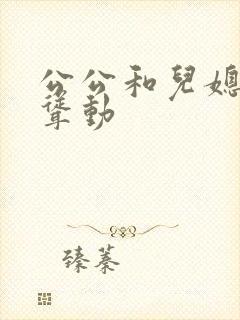 公公和兒媳
聳動
臻蓁